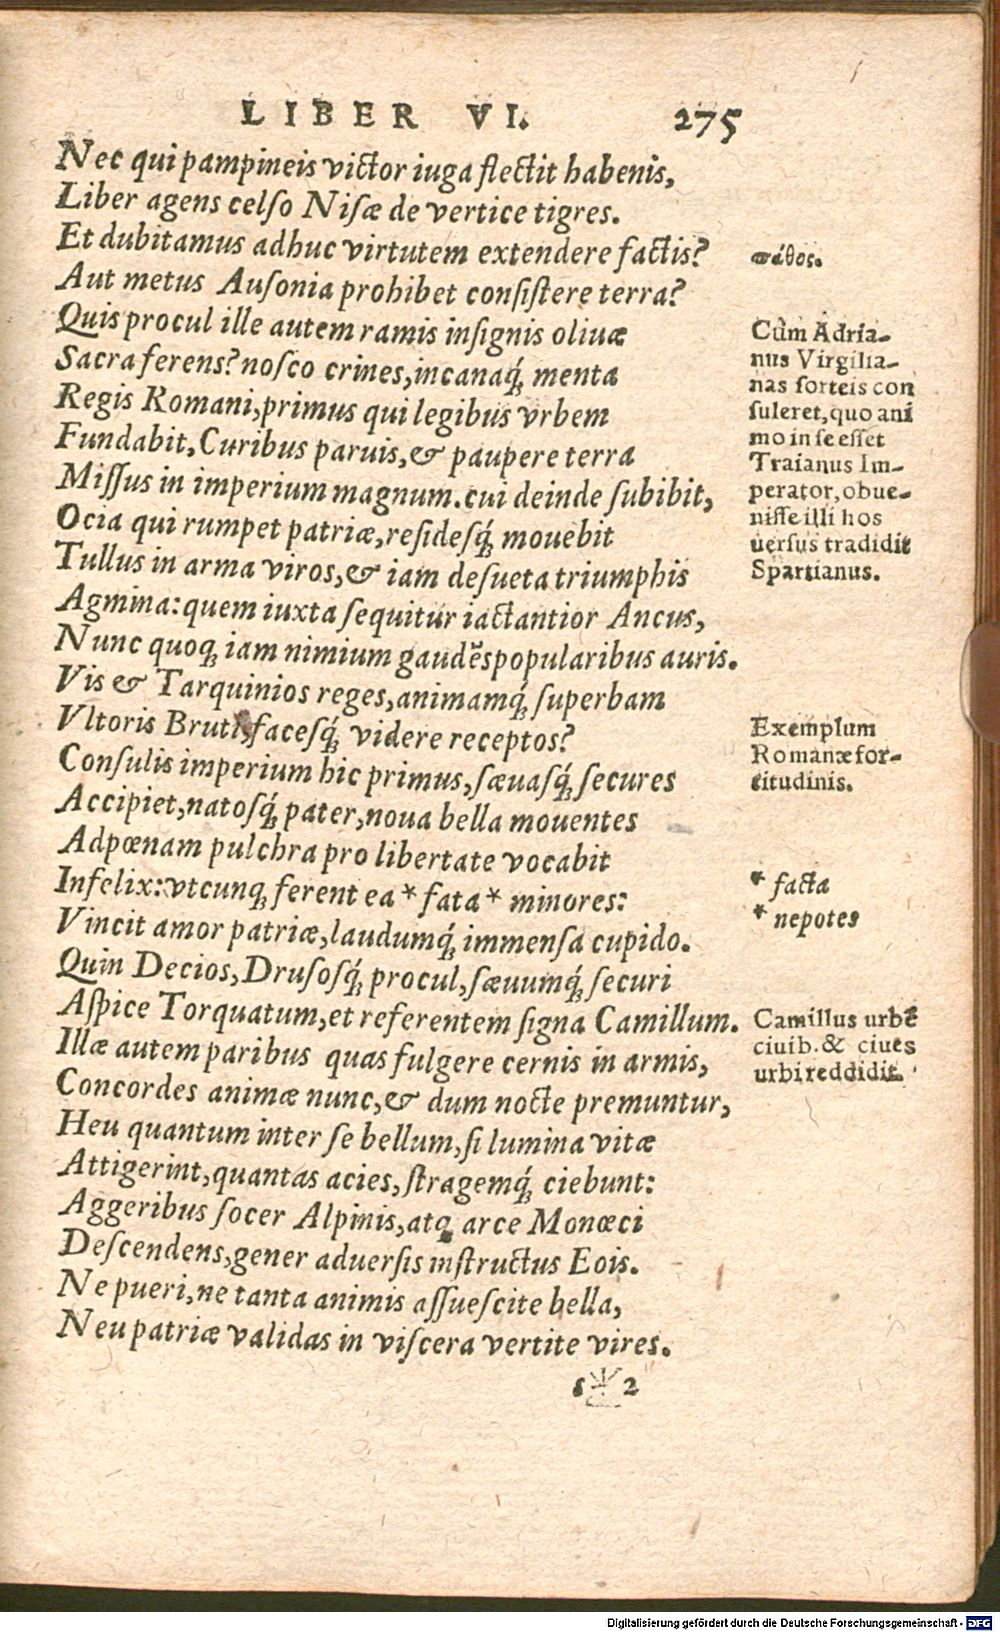 LIBER VI. 275
Nec qui pampineis victor iuga flectit habenis,
Liber agens celſo Niſæ de vertice tigres.
Et dubitamus adhuc virtutem extendere factis?
Aut metus Auſonia prohibet conſiſtere terra?
Quis procul ille autem ramis inſignis oliuæ
Sacra ferens? noſco crines, incanaq́; menta
Regis Romani, primus qui legibus vrbem
Fundabit, Curibus paruis, & paupere terra
Miſſus in imperium magnum. cui deinde ſubibit,
Ocia qui rumpet patriæ, reſideſq́; mouebit
Tullus in arma viros, & iam deſueta triumphis
Agmina: quem iuxta ſequitur iactantior Ancus,
Nunc quoq; iam nimium gaudēs popularibus auris.
Vis & Tarquinios reges, animamq́; ſuperbam
Vltoris Bruti, faceſq́; videre receptos?
Conſulis imperium hic primus, ſæuaſq́; ſecures
Accipiet, natoſq́; pater, noua bella mouentes
Ad pœnam pulchra pro libertate vocabit
Infelix: vtcunq; ferent ea * fata * minores:
Vincit amor patriæ, laudumq́; immenſa cupido.
Quin Decios, Druſoſq́; procul, ſæuumq́; ſecuri
Aſpice Torquatum, et referentem ſigna Camillum.
Illæ autem paribus quas fulgere cernis in armis,
Concordes animæ nunc, & dum nocte premuntur,
Heu quantum inter ſe bellum, ſi lumina vitæ
Attigerint, quantas acies, ſtragemq́; ciebunt:
Aggeribus ſocer Alpinis, atq; arce Monœci
Deſcendens, gener aduerſis inſtructus Eois.
Ne pueri, ne tanta animis aſſueſcite bella,
Neu patriæ validas in viſcera vertite vires.
s 2
πάθος.
Cùm Adria-
nus Virgilia-
nas ſorteis con
ſuleret, quo ani
mo in ſe eſſet
Traianus Im-
perator, obue-
niſſe illi hos
uerſus tradidit
Spartianus.
Exemplum
Romanæ for-
titudinis.
* facta
* nepotes
Camillus urbē
ciuib. & ciues
urbi reddidit.
Digitalisierung gefördert durch die Deutsche Forschungsgemeinschaft - DFG